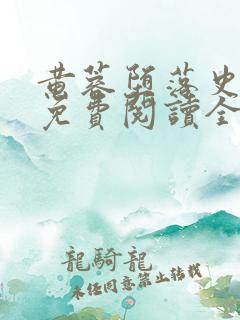 黄蓉堕落史
免費閱讀全
龍騎龍
未經同意禁止轉載